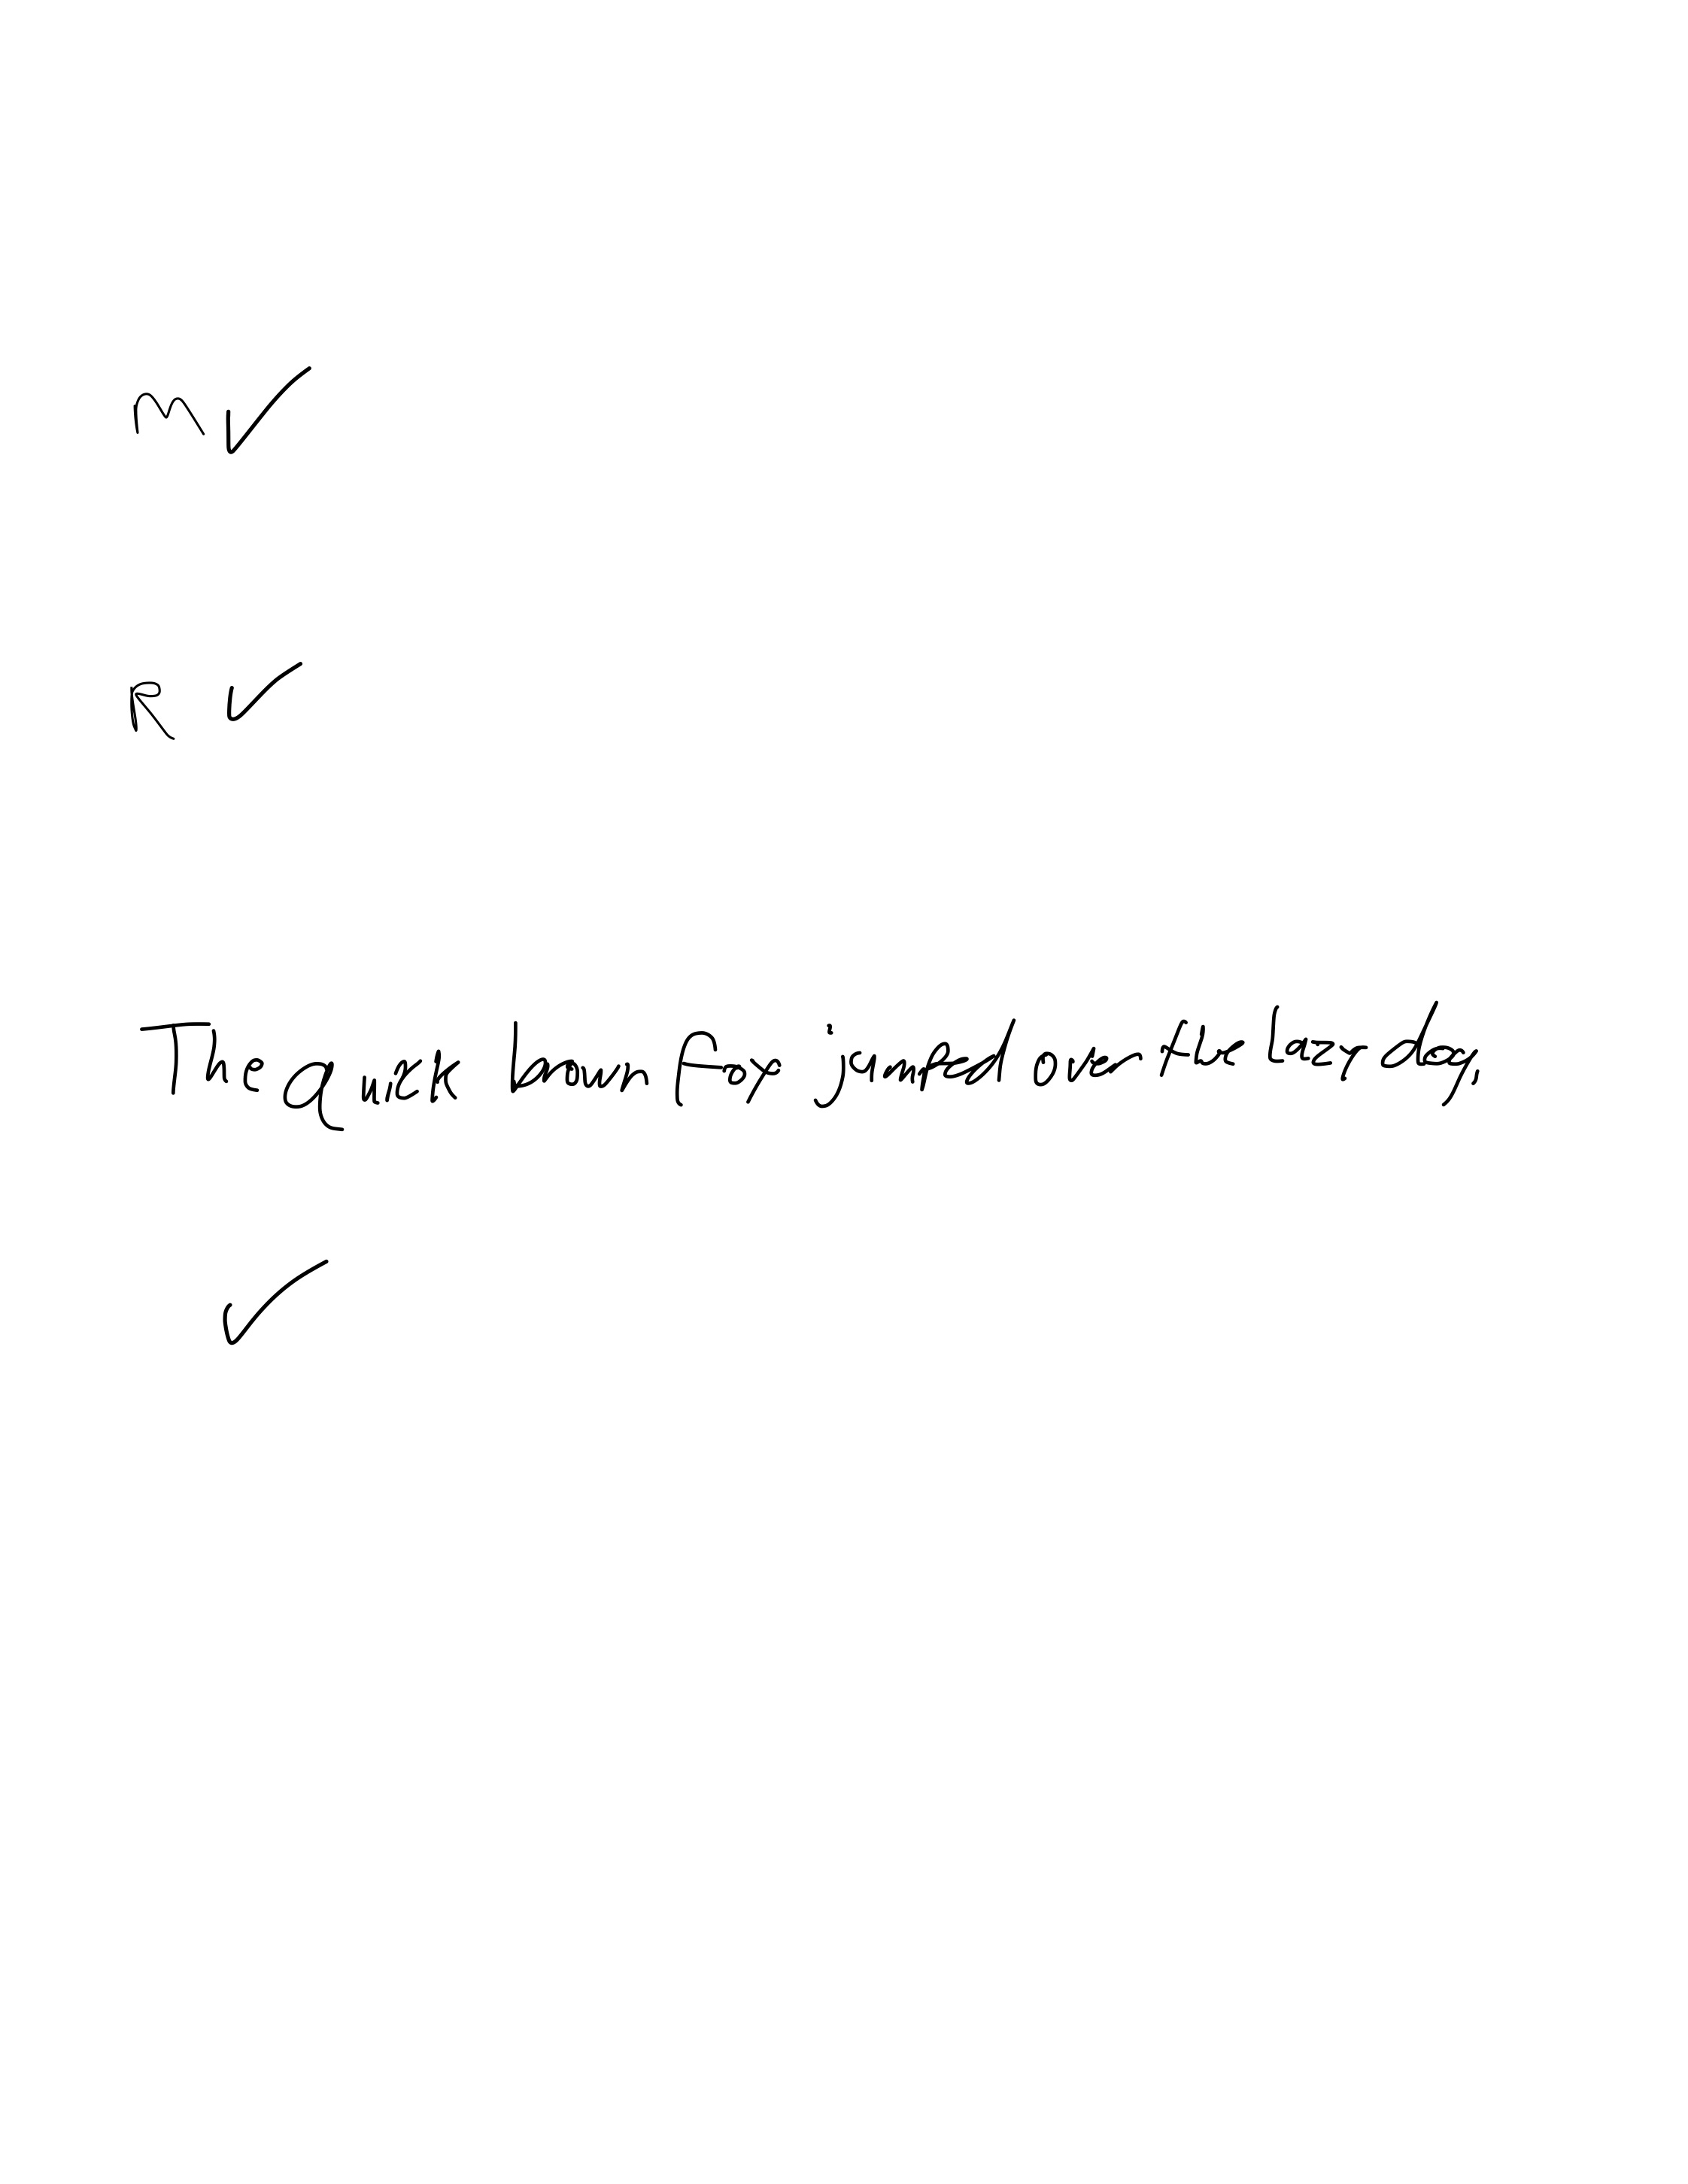 M ✓
R ✓
The quick brown fox jumped over the lazy dog,
✓